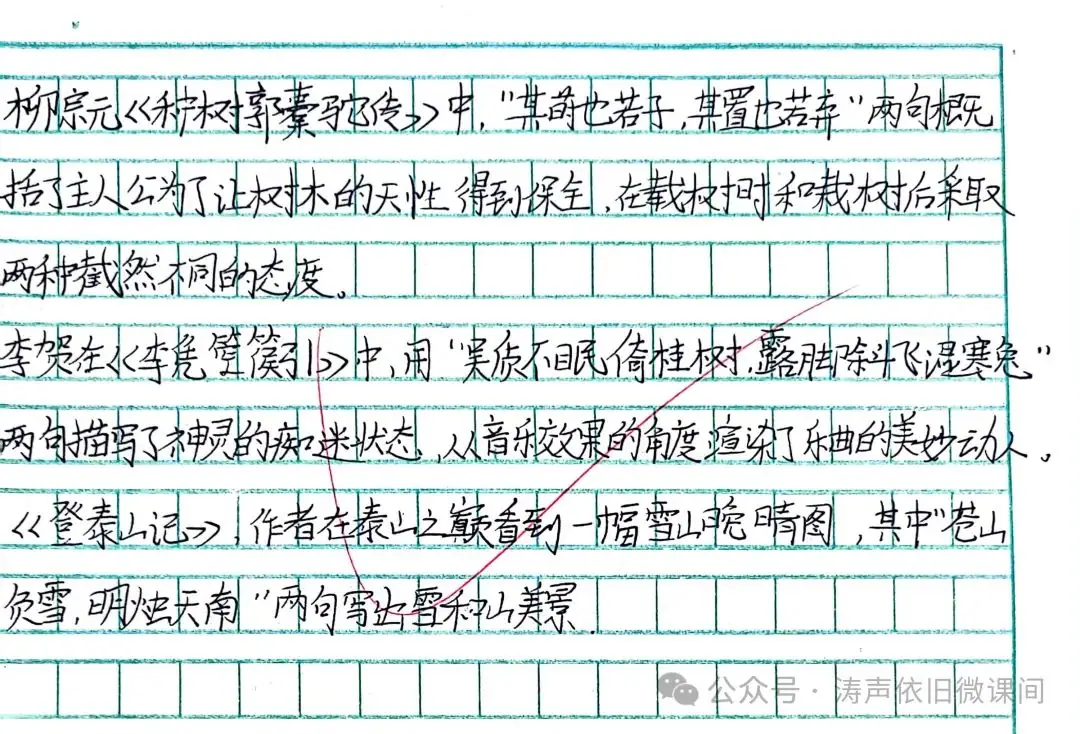 柳宗元《种树郭橐驼传》中，“其莳也若子，其置也若弃”两句概
括了主人公为了让树木的天性得到保全，在栽树时和栽树后采取
两种截然不同的态度。
李贺在《李凭箜篌引》中，用“吴质不眠倚桂树，露脚斜飞湿寒兔”
两句描写了神灵的痴迷状态，从音乐效果的角度渲染了乐曲的美妙动人。
《登泰山记》，作者在泰山之巅看到一幅雪山晚晴图，其中“苍山
负雪，明烛天南”两句写出雪和山美景.
公众号·涛声依旧微课间